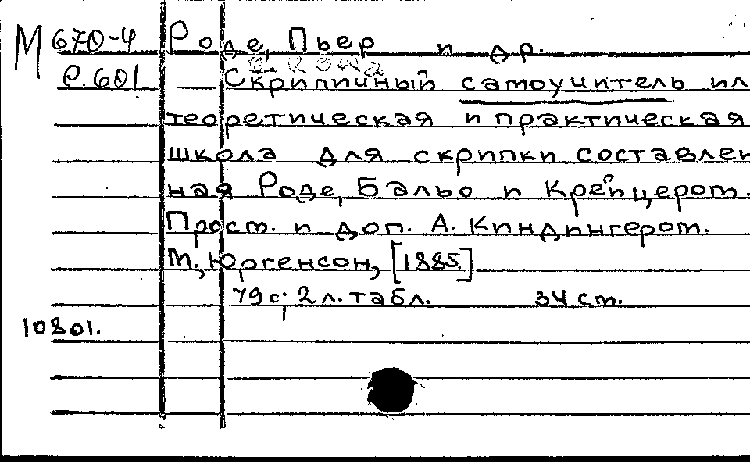 М 670-4 Роде, Пьер и др.
Р.601 Скрипичный самоучитель ил
теоретическая и практическая
школа для скрипки составлен
ная Роде, Бальо и Крейцером.
Прост. и доп. А. Киндингером.
М., Юргенсон, [1885]
79 с; 2 л. табл. 34 ст.
10801.